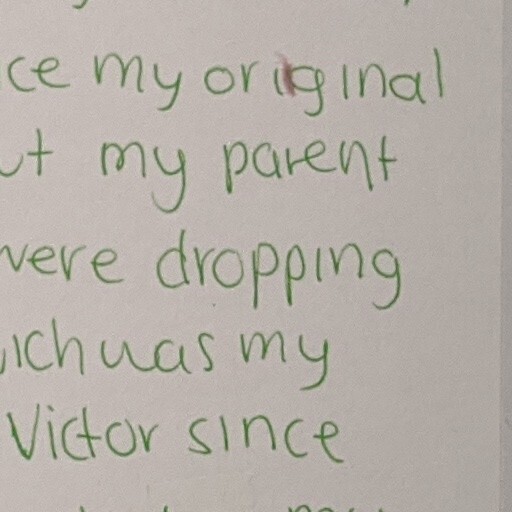 ce my original
ut my parent
were dropping
ich was my
Victor since